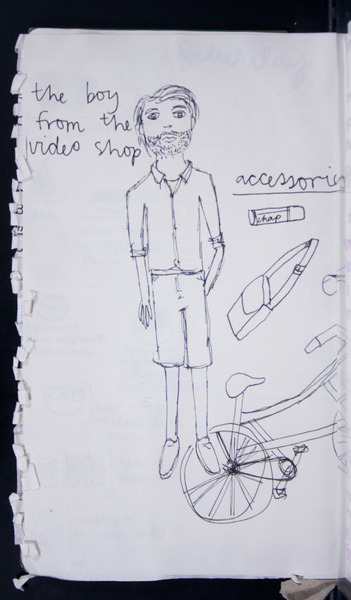 the boy
from the
video shop
accessories
chap